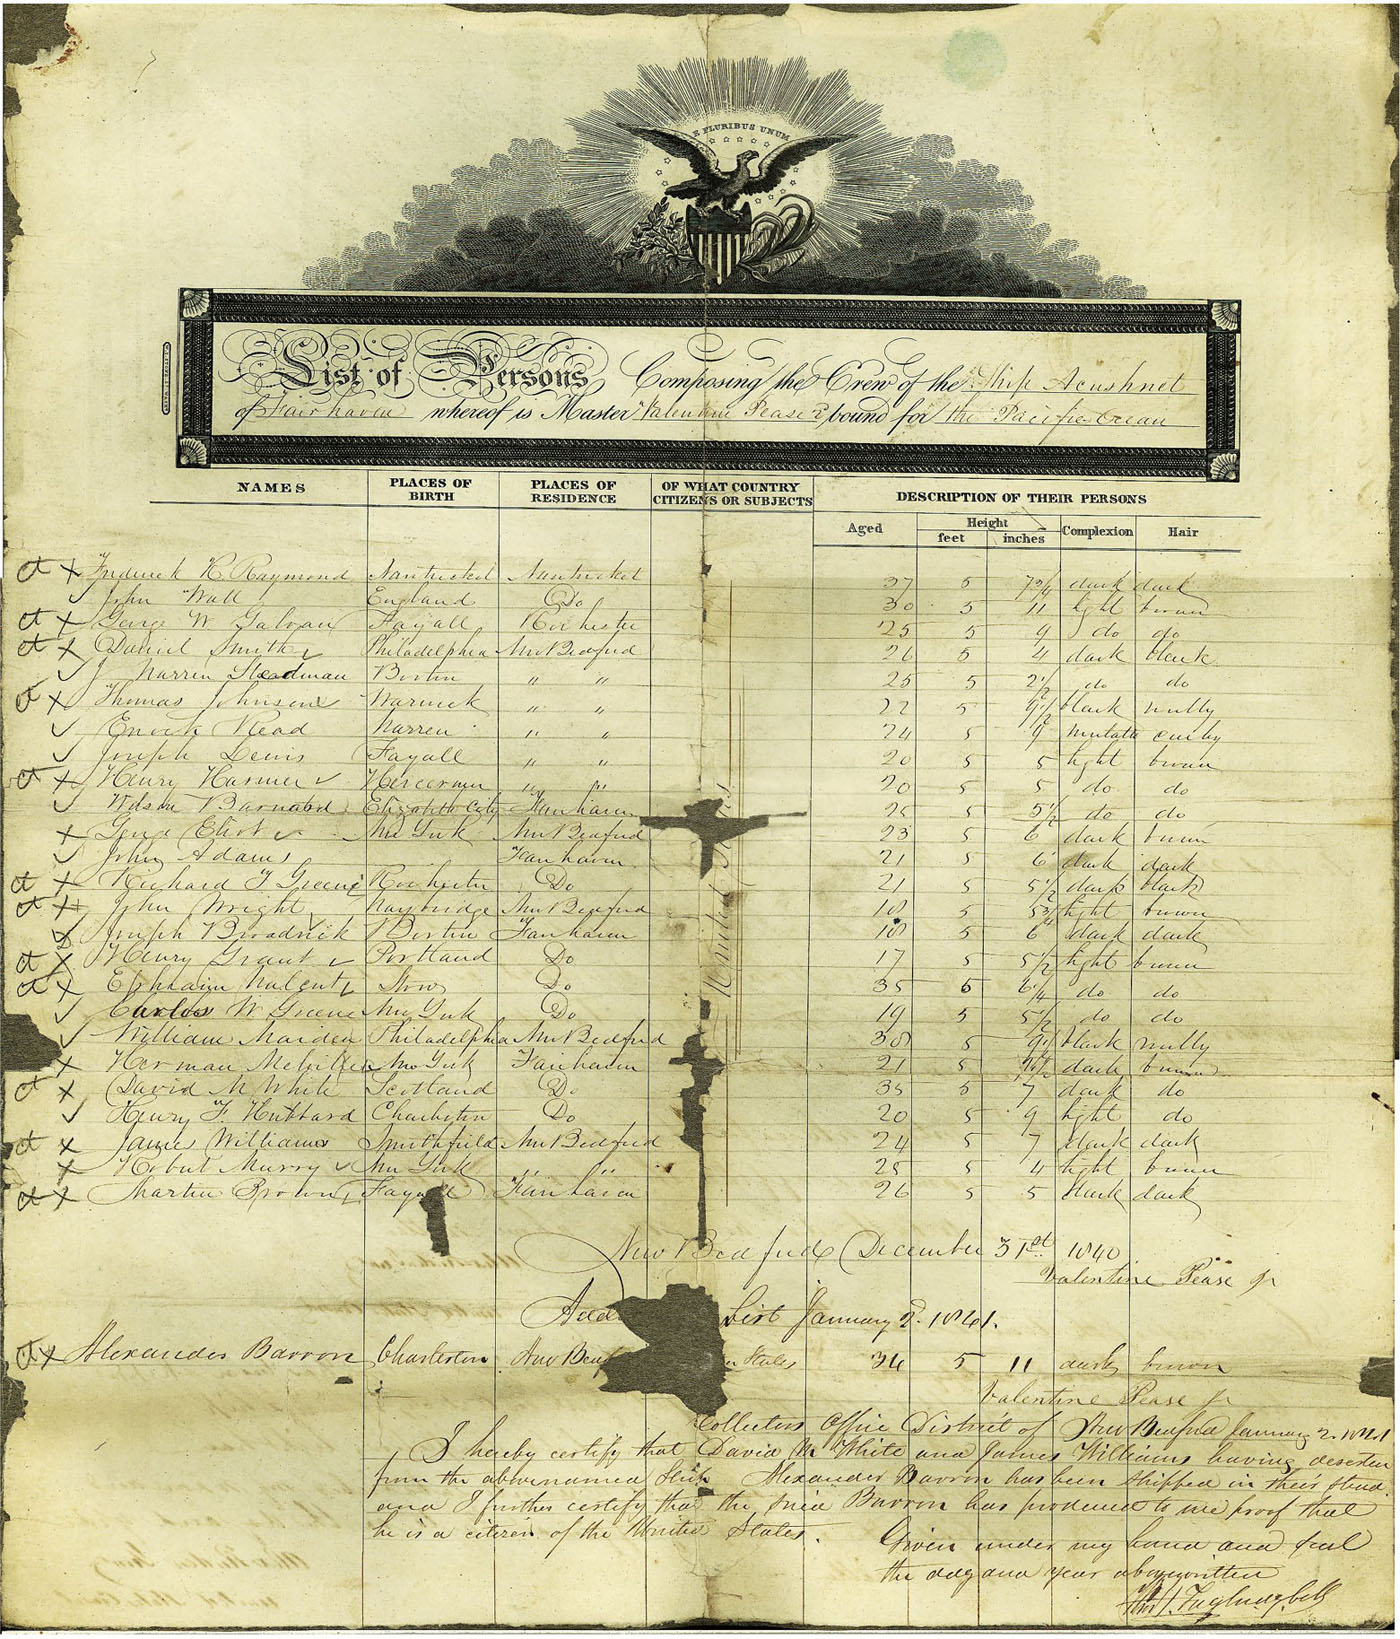 E PLURIBUS UNUM
List of Persons Composing the Crew of the Ship Acushnet
of Fairhaven whereof is Master Valentine Pease Jr bound for the Pacific Ocean
NAMES PLACES OF BIRTH PLACES OF RESIDENCE OF WHAT COUNTRY CITIZENS OR SUBJECTS DESCRIPTION OF THEIR PERSONS
Aged Height feet inches Complexion Hair
Frederick R. Raymond Nantucket Nantucket 27 5 7 3/4 dark dark
John Wall England Do 30 5 11 light brown
George W Galvan Fayall Rochester 25 5 9 do do
Daniel Smith Philadelphia New Bedford 26 5 4 dark black
Warren Steadman Boston " " 25 5 2 1/2 do do
Thomas Johnson Warwick " " 22 5 9 1/2 black woolly
Enoch Read Warren " " 24 5 9 mulatto curly
Joseph Lewis Fayall " " 20 5 5 light brown
Henry Harmer " " 20 5 5 do do
Wilson Barnard Elizabeth City Fairhaven 25 5 5 1/2 do do
George Eliot New York New Bedford 23 5 6 dark brown
John Adams Fairhaven 21 5 6 dark dark
Richard T Greene Rochester Do 21 5 5 1/2 dark black
John Wright Waybridge New Bedford 18 5 5 3/4 light brown
Joseph Broadrick Boston Fairhaven 18 5 6 dark dark
Henry Grant Portland Do 17 5 5 1/2 light brown
Ephraim Walcut Stow Do 35 5 6 1/4 do do
Carlos W Greene New York Do 19 5 5 1/2 do do
William Maiden Philadelphia New Bedford 38 5 9 1/2 black woolly
Herman Melville New York Fairhaven 21 5 9 1/2 dark brown
David M White Scotland Do 35 5 7 dark do
Henry F. Hubbard Charleston Do 20 5 9 light do
James Williams Smithfield New Bedford 24 5 7 dark dark
Robert Murry New York " " 25 5 4 light brown
Martin Brown Fayall Fairhaven 26 5 5 dark dark
United States
New Bedford December 31st. 1840
Valentine Pease Jr
List January 2. 1841.
Alexander Barron Charleston New States 34 5 11 dark brown
Valentine Pease Jr
Collectors Office District of New Bedford January 2. 1841
I hereby certify that David M White and James Williams having deserted
from the abovenamed Ship Alexander Barron has been shipped in their stead
and I further certify that the said Barron has produced to me proof that
he is a citizen of the United States.
Given under my hand and seal
the day and year abovewritten